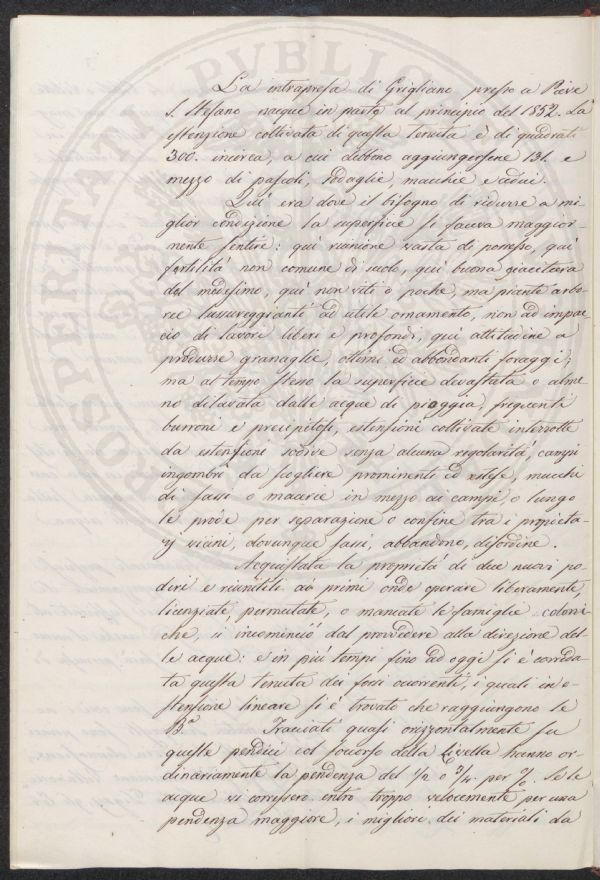 La intrapresa di Grigliano presso a Pieve
S. Stefano nacque in parte al principio del 1852. La
estensione coltivata di questa tenuta è di quadrati
300. incirca, a cui debbono aggiungersene 131. e
mezzo di pascoli, sodaglie, macchie e
Qui era dove il bisogno di ridurre a mi
glior condizione la superficie si faceva maggior-
mente sentire: qui riunione vasta di possesso, qui
fertilità non comune di suolo, qui buona giacitura
del medesimo, qui non viti o poche, ma piante arbo
ree lussureggianti ad utile ornamento, non ad impac
cio di lavori liberi e profondi, qui attitudine a
produrre granaglie, ottimi ed abbondanti foraggi;
ma al tempo stesso la superficie devastata o alme
no dilavata dalle acque di pioggia, frequenti
burroni e precipitosi, estensioni coltivate interrotte
da estensioni sodive senza alcuna regolarità, campi
ingombri da scogliere prominenti ed estese, mucchi
di sassi o macerie in mezzo ai campi, o lungo
le prode per separazione o confine tra i propieta-
rj vicini, dovunque sassi, abbandono, disordine.
Acquistata la proprietà di due nuovi po
deri e riunitili ai primi onde operare liberamente,
licenziate, permutate, o mancate le famiglie coloni
che, si incominciò dal provvedere alla direzione del-
le acque: e in più tempi fino ad oggi si è correda-
ta questa tenuta dei fossi occorrenti, i quali in e-
stensione lineare si è trovato che raggiungono le
Bª Tracciati quasi orizzontalmente su
queste pendici col soccorso della Livella hanno or-
dinariamente la pendenza del ½ o ¾ per %. Se le
acque vi corressero entro troppo velocemente per una
pendenza maggiore, i migliori dei materiali da
PROSPERITATI PVBLICAE